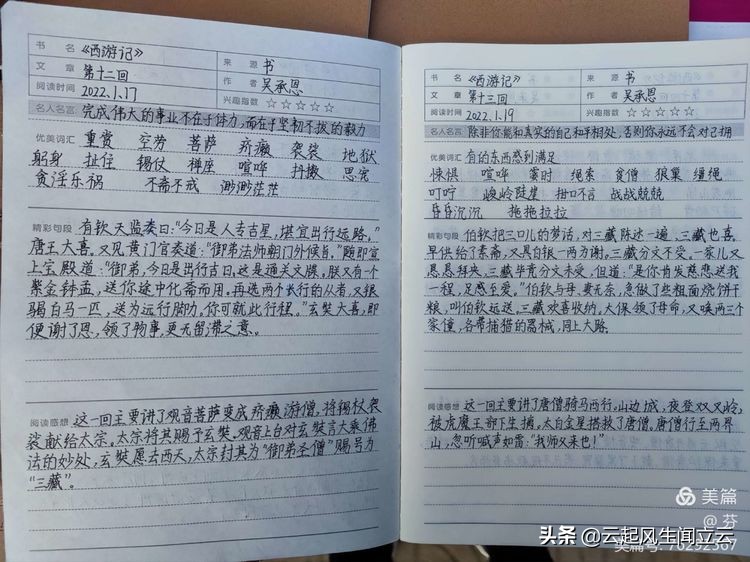 书 名 《西游记》
来 源 书
文 章 第十二回
作 者 吴承恩
阅读时间 2022.1.17
兴趣指数 ☆☆☆☆☆
名人名言 完成伟大的事业不在于体力,而在于坚韧不拔的毅力
优美词汇 重赏 空劳 菩萨 疥癞 袈裟 地狱
躬身 扯住 锡仗 禅座 喧哗 抖擞 思忖
贪淫乐祸 不斋不戒 渺渺茫茫
精彩句段 有钦天监奏曰:“今日是人专吉星,堪宜出行远路。”
唐王大喜。又见黄门官奏道:“御弟法师朝门外候旨。”随即宣
上宝殿道:“御弟,今日是出行吉日。这是通关文牒。朕又有一个
紫金钵盂,送你途中化斋而用。再选两个长行的从者,又银
骑白马一匹,送为远行脚力。你可就此行程。”玄奘大喜,即
便谢了恩,领了物事,更无留滞之意。
阅读感想 这一回主要讲了观音菩萨变成疥癞游僧,将锡杖袈
裟献给太宗。太宗将其赐予玄奘。观音上台对玄奘言大乘佛
法的妙处,玄奘愿去西天,太宗封其为“御弟圣僧”赐号为
“三藏”。
书 名 《西游记》
来 源 书
文 章 第十三回
作 者 吴承恩
阅读时间 2022.1.19
兴趣指数 ☆☆☆☆☆
名人名言 除非你能和真实的自己和平相处,否则你永远不会对己拥
优美词汇 有的东西感到满足
悚惧 喧哗 霎时 绳索 贪僧 狼巢 缰绳
叮咛 峻岭陡崖 拑口不言 战战兢兢
昏昏沉沉 拖拖拉拉
精彩句段 伯钦把三口儿的梦话,对三藏陈述一遍,三藏也喜。
早供给了素斋,又具白银一两为谢。三藏分文不受。一家儿又
恳恳拜央,三藏毕竟分文未受,但道:“是你肯发慈悲送我
一程,足感至爱。”伯钦与母妻无奈,急做了些粗面烧饼干
粮,叫伯钦远送。三藏欢喜收纳。太保领了母命,又唤两三个
家僮,各带捕猎的器械,同上大路。
阅读感想 这一回主要讲了唐僧骑马西行,山边城,夜登双叉岭,
被虎魔王部下生擒。太白金星搭救了唐僧。唐僧行至两界
山,忽听喊声如雷:“我师父来也!”
美篇
@ 芬
美篇号: 76292367
头条 @云起风生闻立云